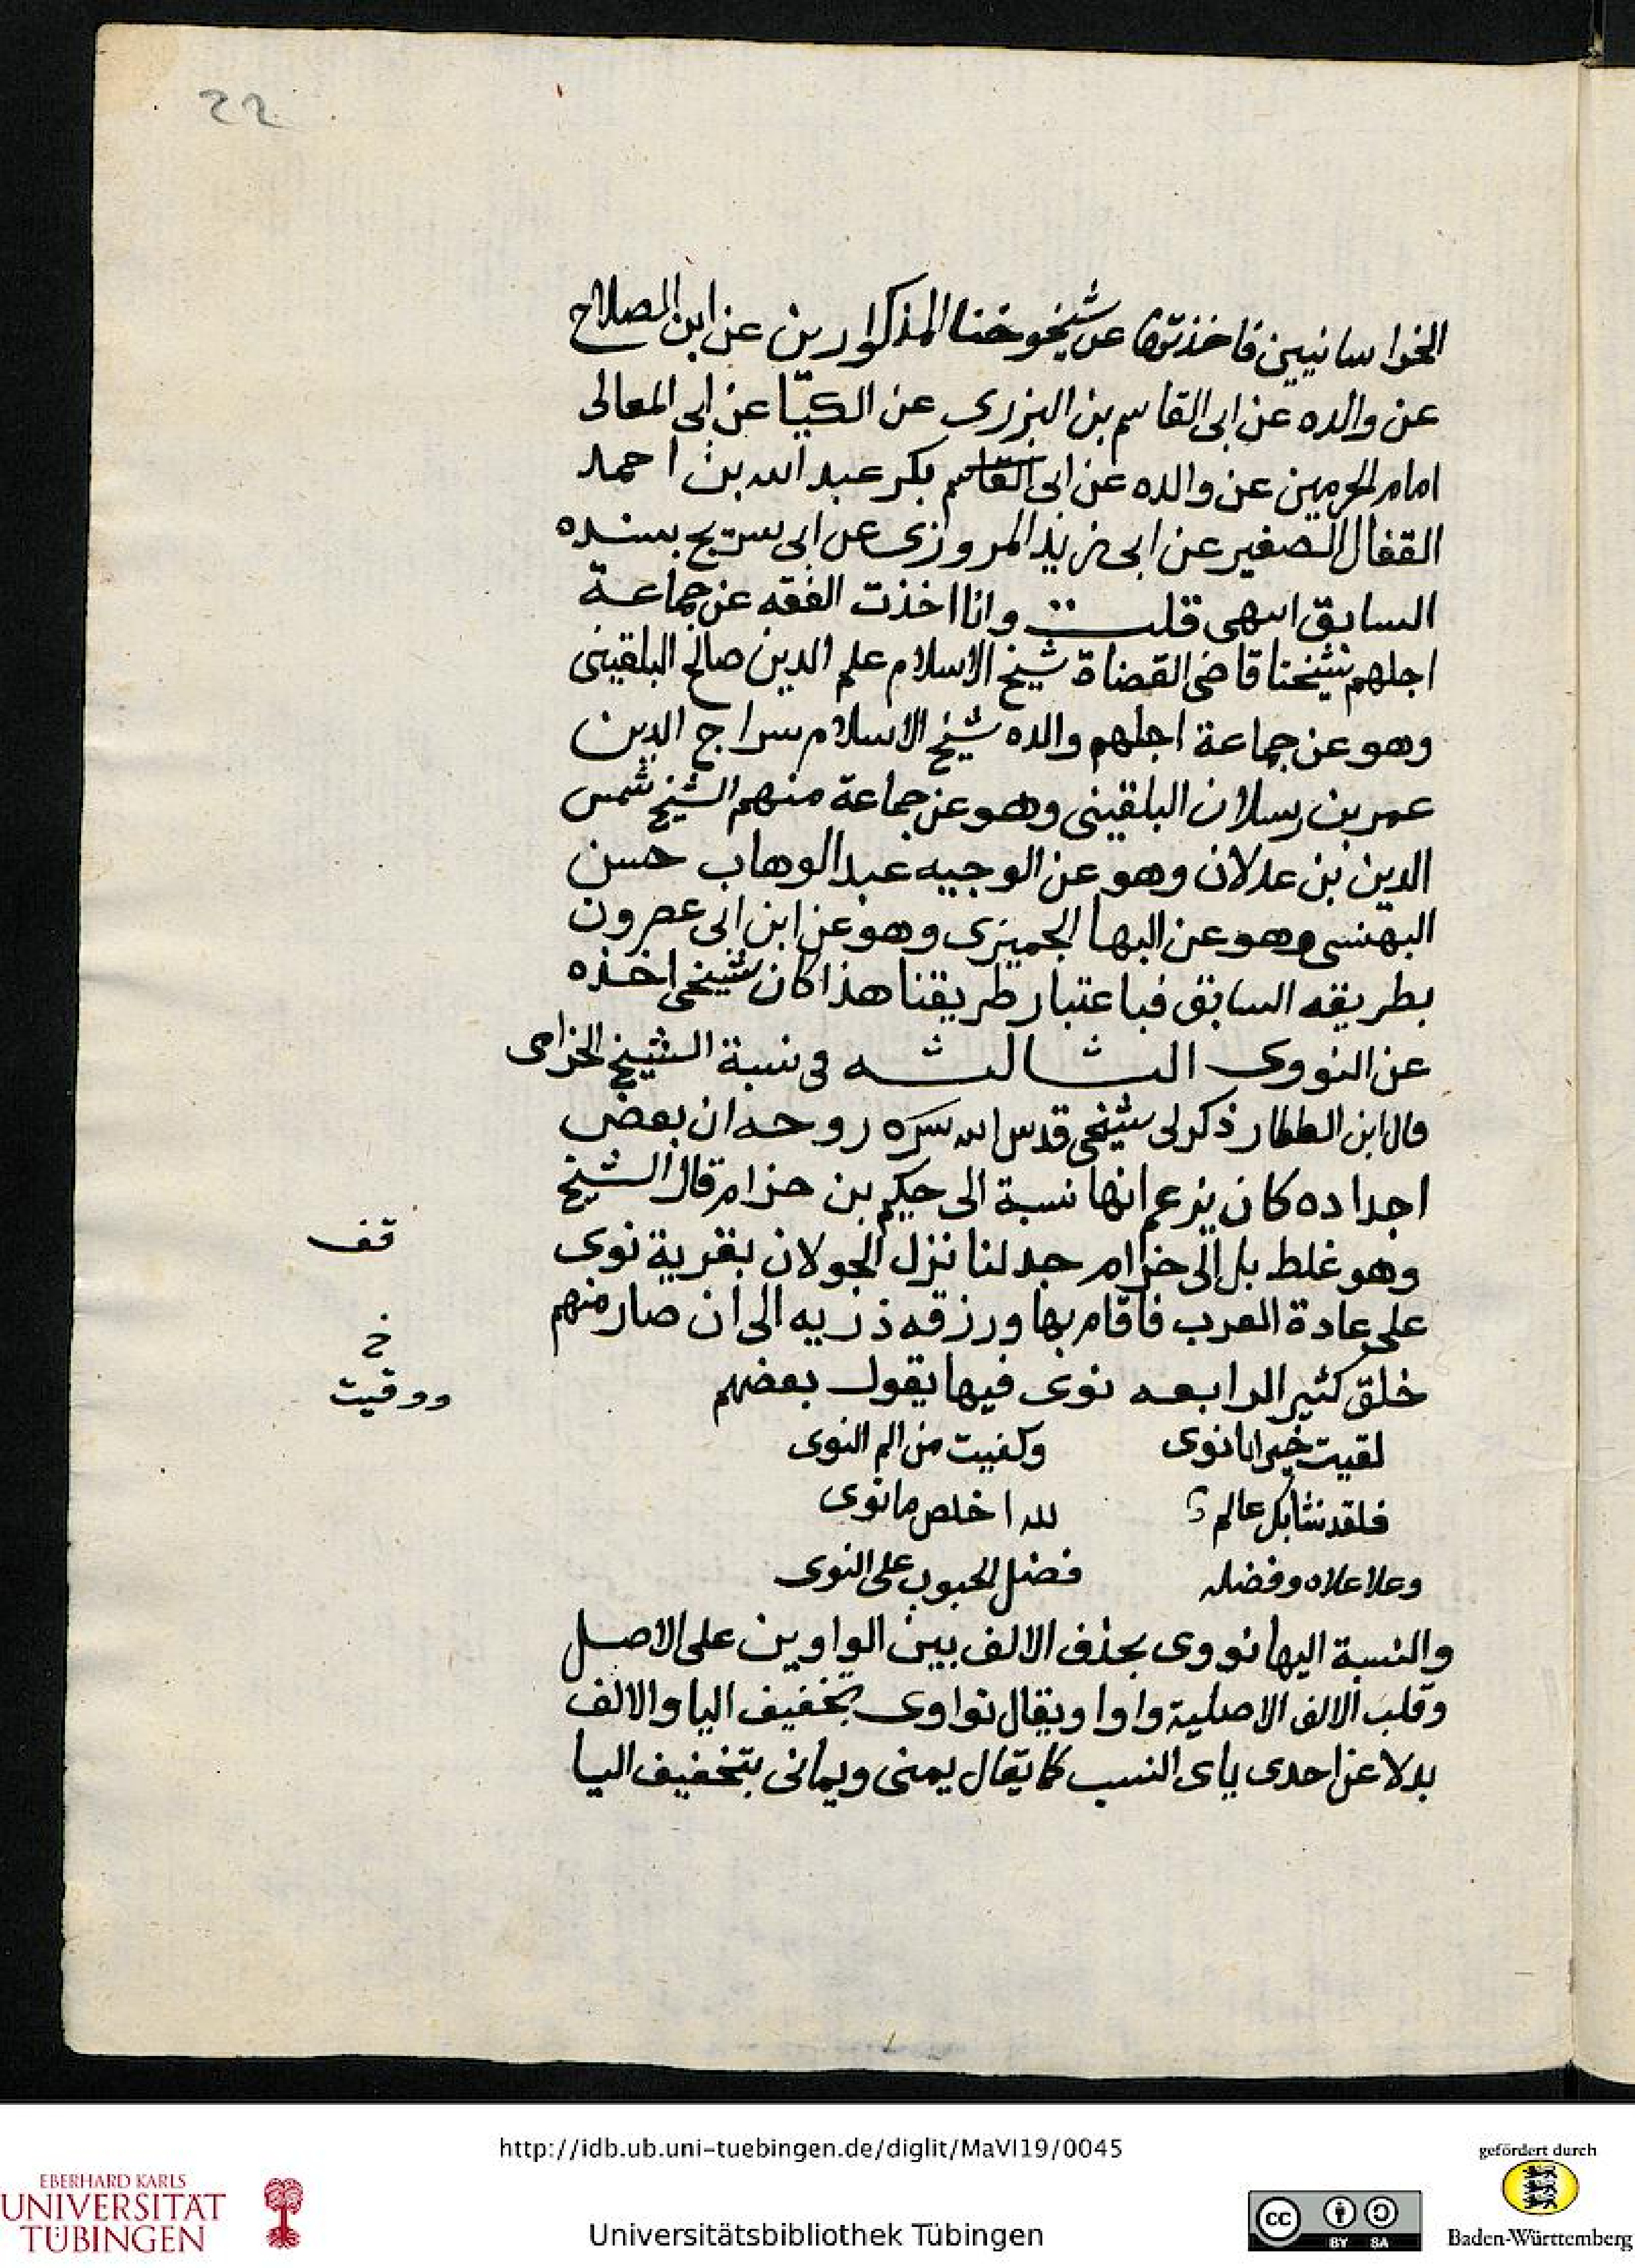 22
الخراسانيين فاخذتها عن شيخوخنا المذكورين عن ابن الصلاح
عن والده عن ابى القاسم بن البزرى عن الكيّا عن ابى المعالى
امام الحرمين عن والده عن ابى القاسم بكر عبد الله بن احمد
القفال الصغير عن ابى زيد المروزى عن ابى سريج بسنده
السابق انتهى قلت وانا اخذت الفقه عن جماعة
اجلهم شيخنا قاضى القضاة شيخ الاسلام علم الدين صالح البلقينى
وهو عن جماعة اجلهم والده شيخ الاسلام سراج الدين
عمر بن رسلان البلقينى وهو عن جماعة منهم الشيخ شمس
الدين بن عدلان وهو عن الوجيه عبد الوهاب حسن
البهنسى وهو عن البها الجميزى وهو عن ابن ابى عصرون
بطريقه السابق فباعتبار طريقنا هذا كان شيخى اخذه
عن النووى الثالثه فى نسبة الشيخ الخزامى
قال ابن العطار ذكر لى شيخى قدس الله سره روحه ان بعض
اجداده كان يزعم انها نسبة الى حكيم بن حزام قال الشيخ
وهو غلط بل الى حزام جد لنا نزل الجولان بقرية نوى
قف
على عادة العرب فاقام بها ورزقه ذريه الى ان صار منهم
خلق كثير الرابعه نوى فيها يقول بعضهم
خ
ووقيت
لقيت خيرا يا نوى وكفيت من الم النوى
فلقد نشا بك عالم لله اخلص ما نوى
وعلا علاه وفضله فضل الحبوب على النوى
والنسبة اليها نووى بحذف الالف بين الواوين على الاصل
وقلب الالف الاصلية واوا ويقال نواوى بتخفيف اليا والالف
بدلا عن احدى ياى النسب كما يقال يمنى ويمانى بتخفيف اليا
http://idb.ub.uni-tuebingen.de/diglit/MaVI19/0045
Universitätsbibliothek Tübingen
EBERHARD KARLS
UNIVERSITÄT
TÜBINGEN
cc
BY SA
gefördert durch
Baden-Württemberg